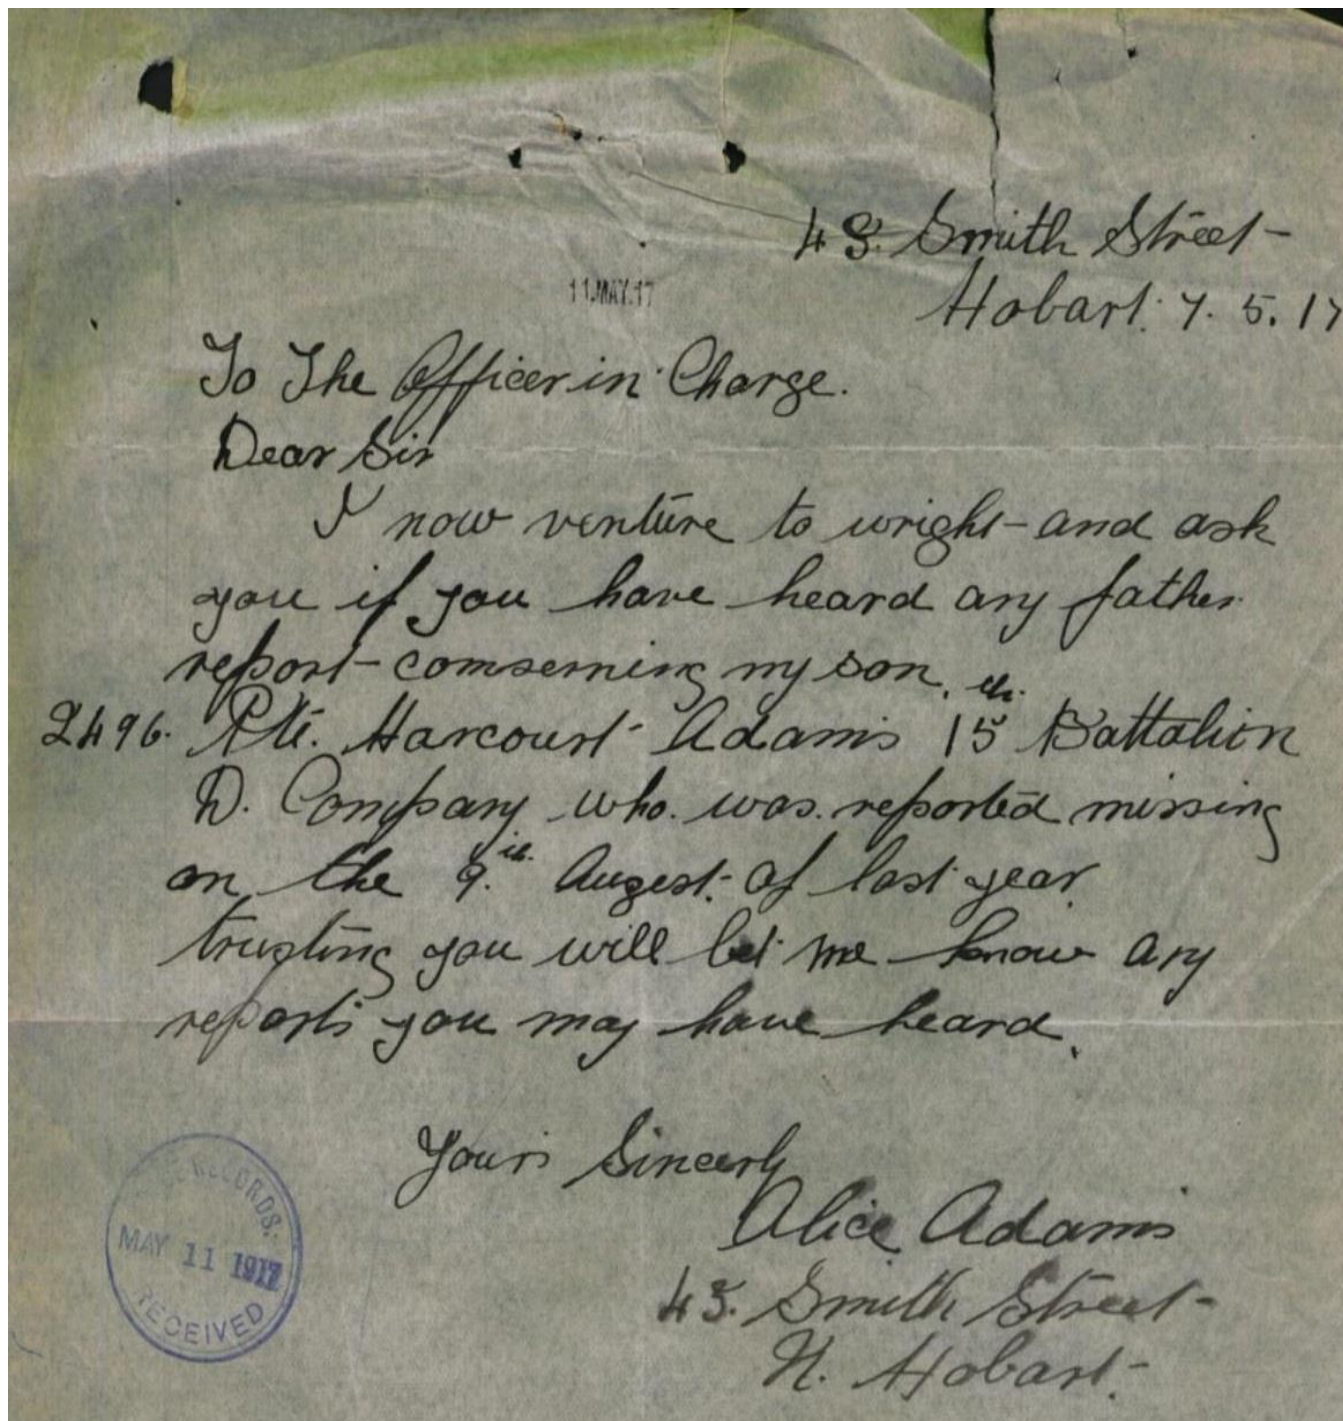 43. Smith Street
11.MAY.17
Hobart. 7. 5. 17
To The Officer in Charge.
Dear Sir
I now venture to wright and ask
you if you have heard any father
report comserning my son.
2496. Pte. Harcourt Adams 15th Battalion
D. Company who. was. reported missing
on the 9.th Augest. of last year.
trusting you will let me know any
reports you may have heard.
Yours Sincerly
Alice Adams
43. Smith Street
N. Hobart.
RECORDS.
MAY 11 1917
RECEIVED